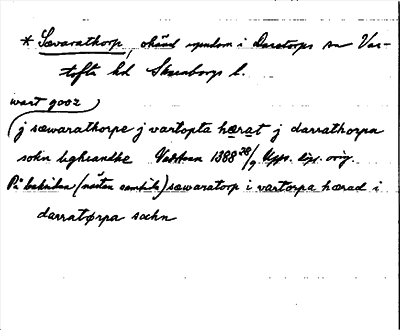 * Sævarathorp, okänd egendom i Daretorps sn Var-
tofta hd Skaraborgs l.
wart gooz
j sæwarathorpe j vartopta hærat j darrathorpa
sokn lighiandhe Vadstena 1388 28/9 Upps. dipl. orig.
På baksidan (nästan samtida) sæwaratorp i vartorpa hærad i
darratørpa sokn